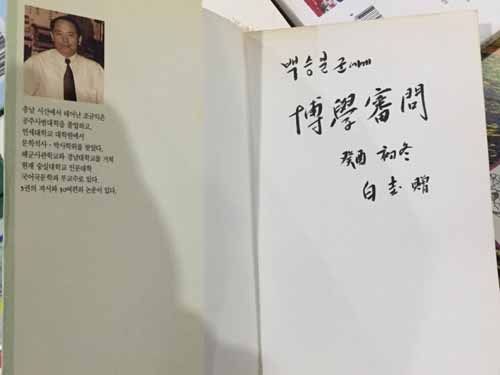 충남 서산에서 태어난 조규익은
공주사범대학을 졸업하고,
연세대학교 대학원에서
문학석사·박사학위를 받았다.
해군사관학교와 경남대학교를 거쳐
현재 숭실대학교 인문대학
국어국문학과 부교수로 있다.
5권의 저서와 30여편의 논문이 있다.
백승호 군에게
博學審問
癸酉 初冬
白圭 贈